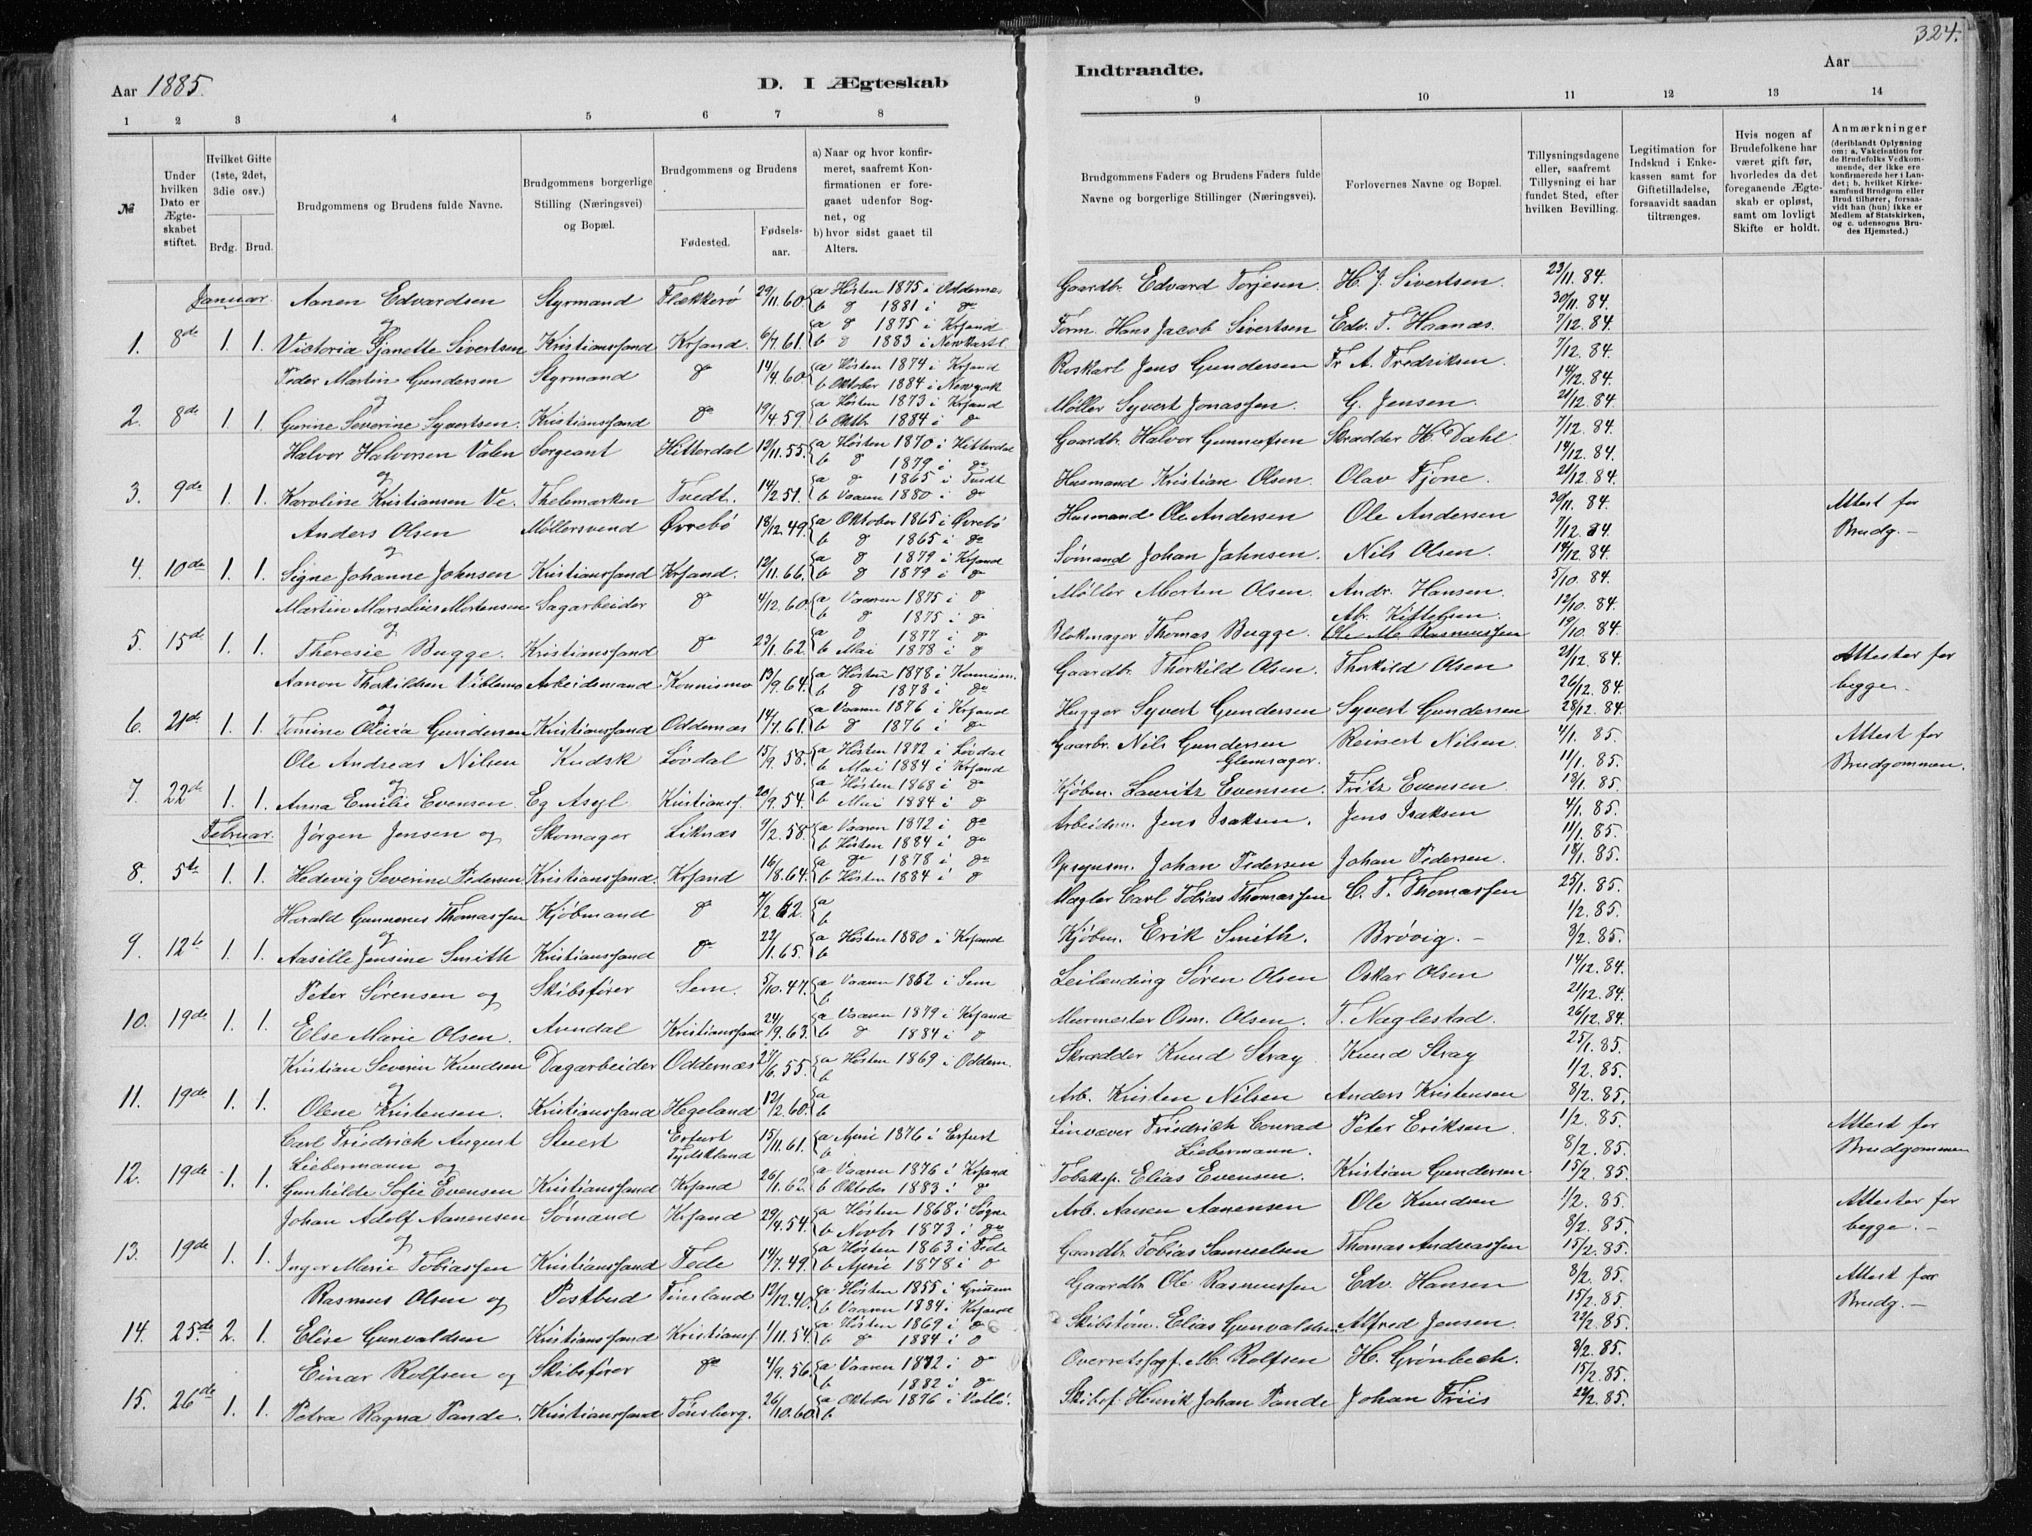 324.
Aar 1885.
D. I Ægteskab
Indtraadte.
Aar
1 2 3 4 5 6 7 8
9 10 11 12 13 14
№
Under hvilken Dato er Ægteskabet stiftet.
Hvilket Gifte (1ste, 2det, 3die osv.)
Brdg. Brud.
Brudgommens og Brudens fulde Navne.
Brudgommens borgerlige Stilling (Næringsvei) og Bopæl.
Brudgommens og Brudens
Fødested. Fødselsaar.
a) Naar og hvor konfirmeret, saafremt Konfirmationen er foregaaet udenfor Sognet, og
b) hvor sidst gaaet til Alters.
Brudgommens Faders og Brudens Faders fulde Navne og borgerlige Stillinger (Næringsvei).
Forlovernes Navne og Bopæl.
Tillysningsdagene eller, saafremt Tillysning ei har fundet Sted, efter hvilken Bevilling.
Legitimation for Indskud i Enkekassen samt for Giftetilladelse, forsaavidt saadan tiltrænges.
Hvis nogen af Brudefolkene har været gift før, hvorledes da det foregaaende Ægteskab er opløst, samt om lovligt Skifte er holdt.
Anmærkninger (deriblandt Oplysning om: a. Vakcination for de Brudefolks Vedkommende, der ikke ere konfirmerede her i Landet; b. hvilket Kirkesamfund Brudgom eller Brud tilhører, forsaavidt han (hun) ikke er Medlem af Statskirken, og c. udensogns Brudes Hjemsted.)
Januar. Aanen Edvardsen Styrmand Flækkerø 29/11.60 a Høsten 1875 i Oddernes b d 1881 i do Gaardbr. Edvard Torjesen. H. J. Sivertsen. 23/11.84. 30/11.84.
og
1. 8de 1. 1. Victoria Sivertsen Kristianssand Krsand. 6/7.61. a d 1875 i Krsand b d 1883 i Form. Hans Jacob Sivertsen Edv. T. Haanæs. 7/12.84.
Peder Martin Gundersen Styrmand do 14/4.60 a Høsten 1874 i Krsand b Oktober 1884 i Newyork Jens Gundersen Fr. A. Fredriksen. 7/12.84. 14/12.84.
og
2. 8de 1. 1. Gurine Severine Syvertsen. Kristianssand do 19/4.59. a Høsten 1873 i Krsand b Oktbr 1884 i d Møller Syvert Jonassen. G. Jensen. 21/12.84.
Halvor Halvorsen Valen Sergeant Hitterdal 12/11.55. a Høsten 1870 i Hitterdal b d 1879 i do Gaardbr. Halvor Skrædder H. Dahl 7/12.84. 14/12.84.
og
3. 9de 1. 1. Karoline Kristiansen Ve. Thelemarken Tvedt. 14/2.51. a d 1865 i Tvedt b Vaaren 1880 i do Husmand Kristian Olsen. Olav Tjøne. 21/12.84.
Anders Olsen Møllersvend Øvrebø 18/12.49. a Oktober 1865 i Øvrebø b d 1865 i do Husmand Ole Andersen Ole Andersen 30/11.84. 7/12.84. Attest for Brudg.-
og
4. 10de 1. 1. Signe Johanne Johnsen Kristianssand Krsand. 12/11.66. a d 1879 i Krsand b d 1879 i do Sømand Johan Jahnsen. Nils Olsen. 14/12.84.
Martin Marselius Mortensen Sagarbeider do 4/12.60 a Vaaren 1875 i d b d 1875 i do Møller Morten Olsen. Andr. Hansen. 5/10.84. 12/10.84.
og
5. 15de 1. 1. Theresie Bugge. Kristianssand do 23/1.62. a d 1877 i d b Mai 1878 i d Blokmager Thomas Bugge. Ab. Kittelsen. Ole M. Rasmussen 19/10.84.
Aanon Thorkildsen Arbeidsmand 13/9.64. a Høsten 1878 i b d 1878 i do Gaardbr. Thorkild Olsen. Thorkild Olsen 21/12.84. 26/12.84. Attester for begge.
og
6. 21de 1. 1. Tomine Olivia Gundersen Kristianssand Oddernæs 14/7.61. a Vaaren 1876 i Krsand b d 1876 i do Hugger Syvert Gundersen Syvert Gundersen 28/12.84.
Ole Andreas Nilsen Kudsk Løvdal 15/9.58. a Høsten 1872 i Løvdal b Mai 1884 i Krsand Gaarbr. Nils Gundersen Reinert Nilsen. 4/1.85. 11/1.85. Attest for Brudgommen.
og
7. 22de 1. 1. Anna Emilie Evensen. Eg Asyl Kristianss 20/9.54. a Høsten 1868 i do b Mai 1884 i d Kjøbm. Lauritz Evensen. Fritz Evensen 18/1.85.
Februar. Jørgen Jensen og Skomager Liknæs 9/2.58. a Vaaren 1872 i do b Høsten 1884 i do Arbeidsm. Jens Isaksen. Jens Isaksen 4/1.85. 11/1.85.
8. 5te 1. 1. Hedevig Severine Pedersen Kristianssand. Krsand 16/8.64. a do 1878 i do b Høsten 1884 i d Opsynsm. Johan Pedersen Johan Pedersen. 18/1.85.
Harald Gunnenes Thomassen Kjøbmand do 7/2.62. a b Mægler Carl Tobias Thomassen C. T. Thomassen 25/1.85. 1/2.85.
og
9. 12te 1. 1. Aasille Jensine Smith Kristianssand do 22/11.65. a Høsten 1880 i Krsand b Kjøbm. Erik Smith. Brøvig. - 8/2.85.
Peter Sørensen og Skibsfører Sem. 5/10.47. a Vaaren 1862 i Sem b Leilænding Søren Olsen Oskar Olsen 14/12.84. 21/12.84.
10. 19de 1. 1. Else Marie Olsen. Arendal Kristianssand 24/9.63. a Vaaren 1879 i Krsand b d 1884 i d Murmester Osm. Olsen. T. Naglestad. 26/12.84.
Kristian Severin Knudsen Dagarbeider Oddernæs 27/6.55. a Høsten 1869 i Oddern. b Skrædder Knud Stray Knud Stray 25/1.85. 1/2.85.
og
11. 19de 1. 1. Olene Kristensen. Kristianssand Hegeland 12/2.60. a b Arb. Kristen Nilsen Anders Kristensen 8/2.85.
Carl Fridrich August Stuert Erfurt Tydskland 15/11.61. a April 1876 i Erfurt b Linvæver Fridrich Conrad Liebermann. Peter Eriksen. 1/2.85. 8/2.85. Attest for Brudgommen
Liebermann og
12. 19de 1. 1. Gunhilde Sofie Evensen Kristianssand Krsand 26/1.62. a Vaaren 1876 i Krsand b Oktober 1883 i d Tobaksp. Elias Evensen. Kristian Gundersen 15/2.85.
Johan Adolf Aanensen Sømand Krsand 29/4.54. a Høsten 1868 i Søgne b Novbr 1873 i do Arb. Aanen Aanensen Ole Knudsen 1/2.85. 8/2.85. Attester for begge.-
og
13. 19de 1. 1. Inger Marie Tobiassen Kristianssand Fede 14/7.49. a Høsten 1863 i Fede b April 1878 i d Gaardbr. Tobias Samuelsen Thomas Andreassen 15/2.85.
Rasmus Olsen og Postbud Finsland 12/12.40. a Høsten 1855 i b Vaaren 1884 i Krsand Gaardbr. Ole Rasmussen Edv. Hansen 8/2.85. 15/2.85. Attest for Brudg.-
14. 25de 2. 1. Elise Gunvaldsen Kristianssand Kristianss 1/11.54. a Høsten 1869 i do b d 1884 i d Skibstøm. Elias Gunvaldsen Alfred Jensen. 22/2.85.
Einar Rolfsen og Skibsfører do 4/9.56. a Vaaren 1872 i do b 1882 i do Overretssagf. M. Rolfsen H. Grønbech. 8/2.85. 15/2.85.
15. 26de 1. 1. Petra Ragna Pande. Kristianssand Tønsberg. 26/10.60. a Oktober 1876 i Valle. b Skibsf. Henrik Johan Pande Johan Friis 22/2.85.